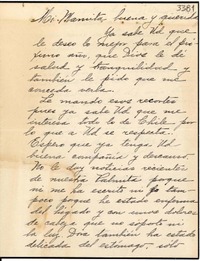 3381
Mi Mamita, buena y querida
Ya sabe Ud que
le deseo lo mejor para el pró
ximo año, que Dios le dé
salud y tranquilidad y
también le pido que me
conceda verla.
Le mando esos recortes
pues ya sabe Ud que me
interesa todo lo de Chile
lo que a Ud se respecta.
Espero que ya tenga Ud
buena compañía y descanso.
No le doy noticias recientes
de nuestra Palmita porque
ni me ha escrito ni yo tam
poco porque he estado enferma
del hígado y con unos dolores
de que no soporto ni
la luz. Ella también ha estado
delicada del estómago, sólo